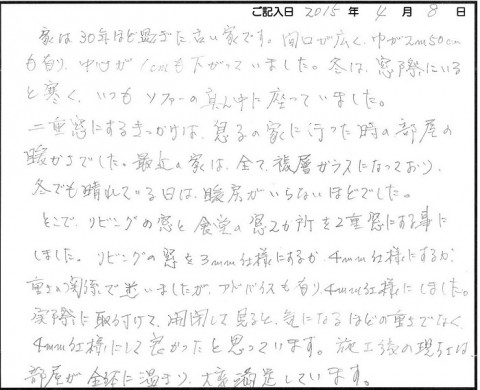 ご記入日 2015 年 4 月 8 日
家は30年ほど過ぎた古い家です。間口が広く、巾が2m50cm
も有り、中心が1cmも下がっていました。冬は、窓際にいる
と寒く、いつもソファーの真ん中に座っていました。
二重窓にするきっかけは、息子の家に行った時の部屋の
暖かさでした。最近の家は、全て、複層ガラスになっており、
冬でも晴れている日は、暖房がいらないほどでした。
そこで、リビングの窓と食堂の窓2カ所を2重窓にする事に
しました。リビングの窓を3mm仕様にするか、4mm仕様にするか、
重さの関係で迷いましたが、アドバイスも有り4mm仕様にしました。
実際に取り付けて、開閉して見ると、気になるほどの重さでなく、
4mm仕様にして良かったと思っています。施工後の現在は、
部屋が全体に温まり、大変満足しています。